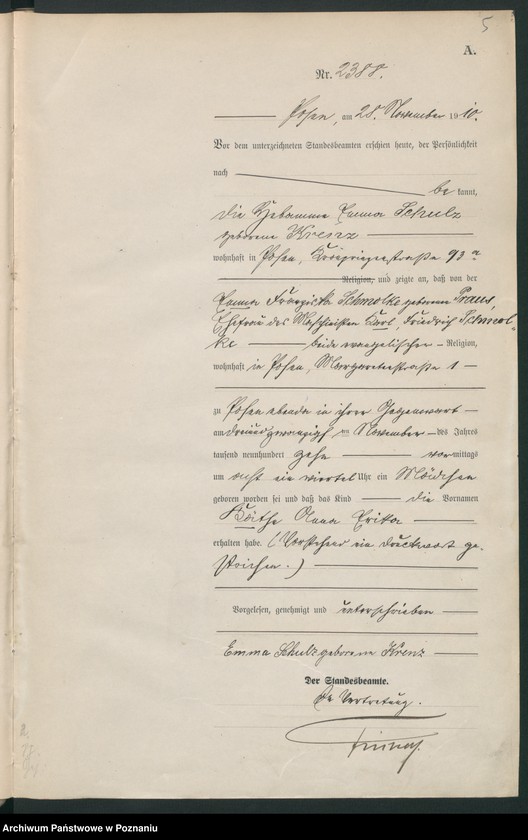 5
A.
Nr. 2388.
Posen, am 28. November 1910.
Vor dem unterzeichneten Standesbeamten erschien heute, der Persönlichkeit
nach
be kannt,
die Hebamme Emma Schulz
geborene Krenz
wohnhaft in Posen,
Religion, und zeigte an, daß von der
Emma Franziska Schmolke geborenen
Ehefrau des Maschinisten Karl Friedrich Schmol-
ke beide evangelischer Religion,
wohnhaft in Posen, Margaretenstraße 1
zu Posen ebenda in ihrer Gegenwart
am dreiundzwanzigsten November des Jahres
tausend neunhundert zehn vormittags
um acht ein viertel Uhr ein Mädchen
geboren worden sei und daß das Kind die Vornamen
Käthe Anna Erika
erhalten habe. (Vorstehend ein Druckwort ge-
strichen.)
Vorgelesen, genehmigt und unterschrieben
Emma Schulz geborene Krenz
Der Standesbeamte.
In Vertretung.
Archiwum Państwowe w Poznaniu